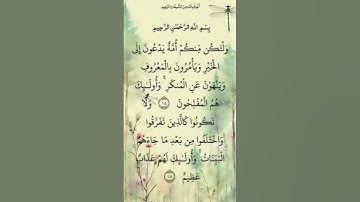 بِسْمِ اللَّهِ الرَّحْمَٰنِ الرَّحِيمِ
وَلْتَكُن مِّنكُمْ أُمَّةٌ يَدْعُونَ إِلَى
الْخَيْرِ وَيَأْمُرُونَ بِالْمَعْرُوفِ
وَيَنْهَوْنَ عَنِ الْمُنكَرِ ۚ وَأُولَٰئِكَ
هُمُ الْمُفْلِحُونَ وَلَا
تَكُونُوا كَالَّذِينَ تَفَرَّقُوا
وَاخْتَلَفُوا مِن بَعْدِ مَا جَاءَهُمُ
الْبَيِّنَاتُ ۚ وَأُولَٰئِكَ لَهُمْ عَذَابٌ
عَظِيمٌ